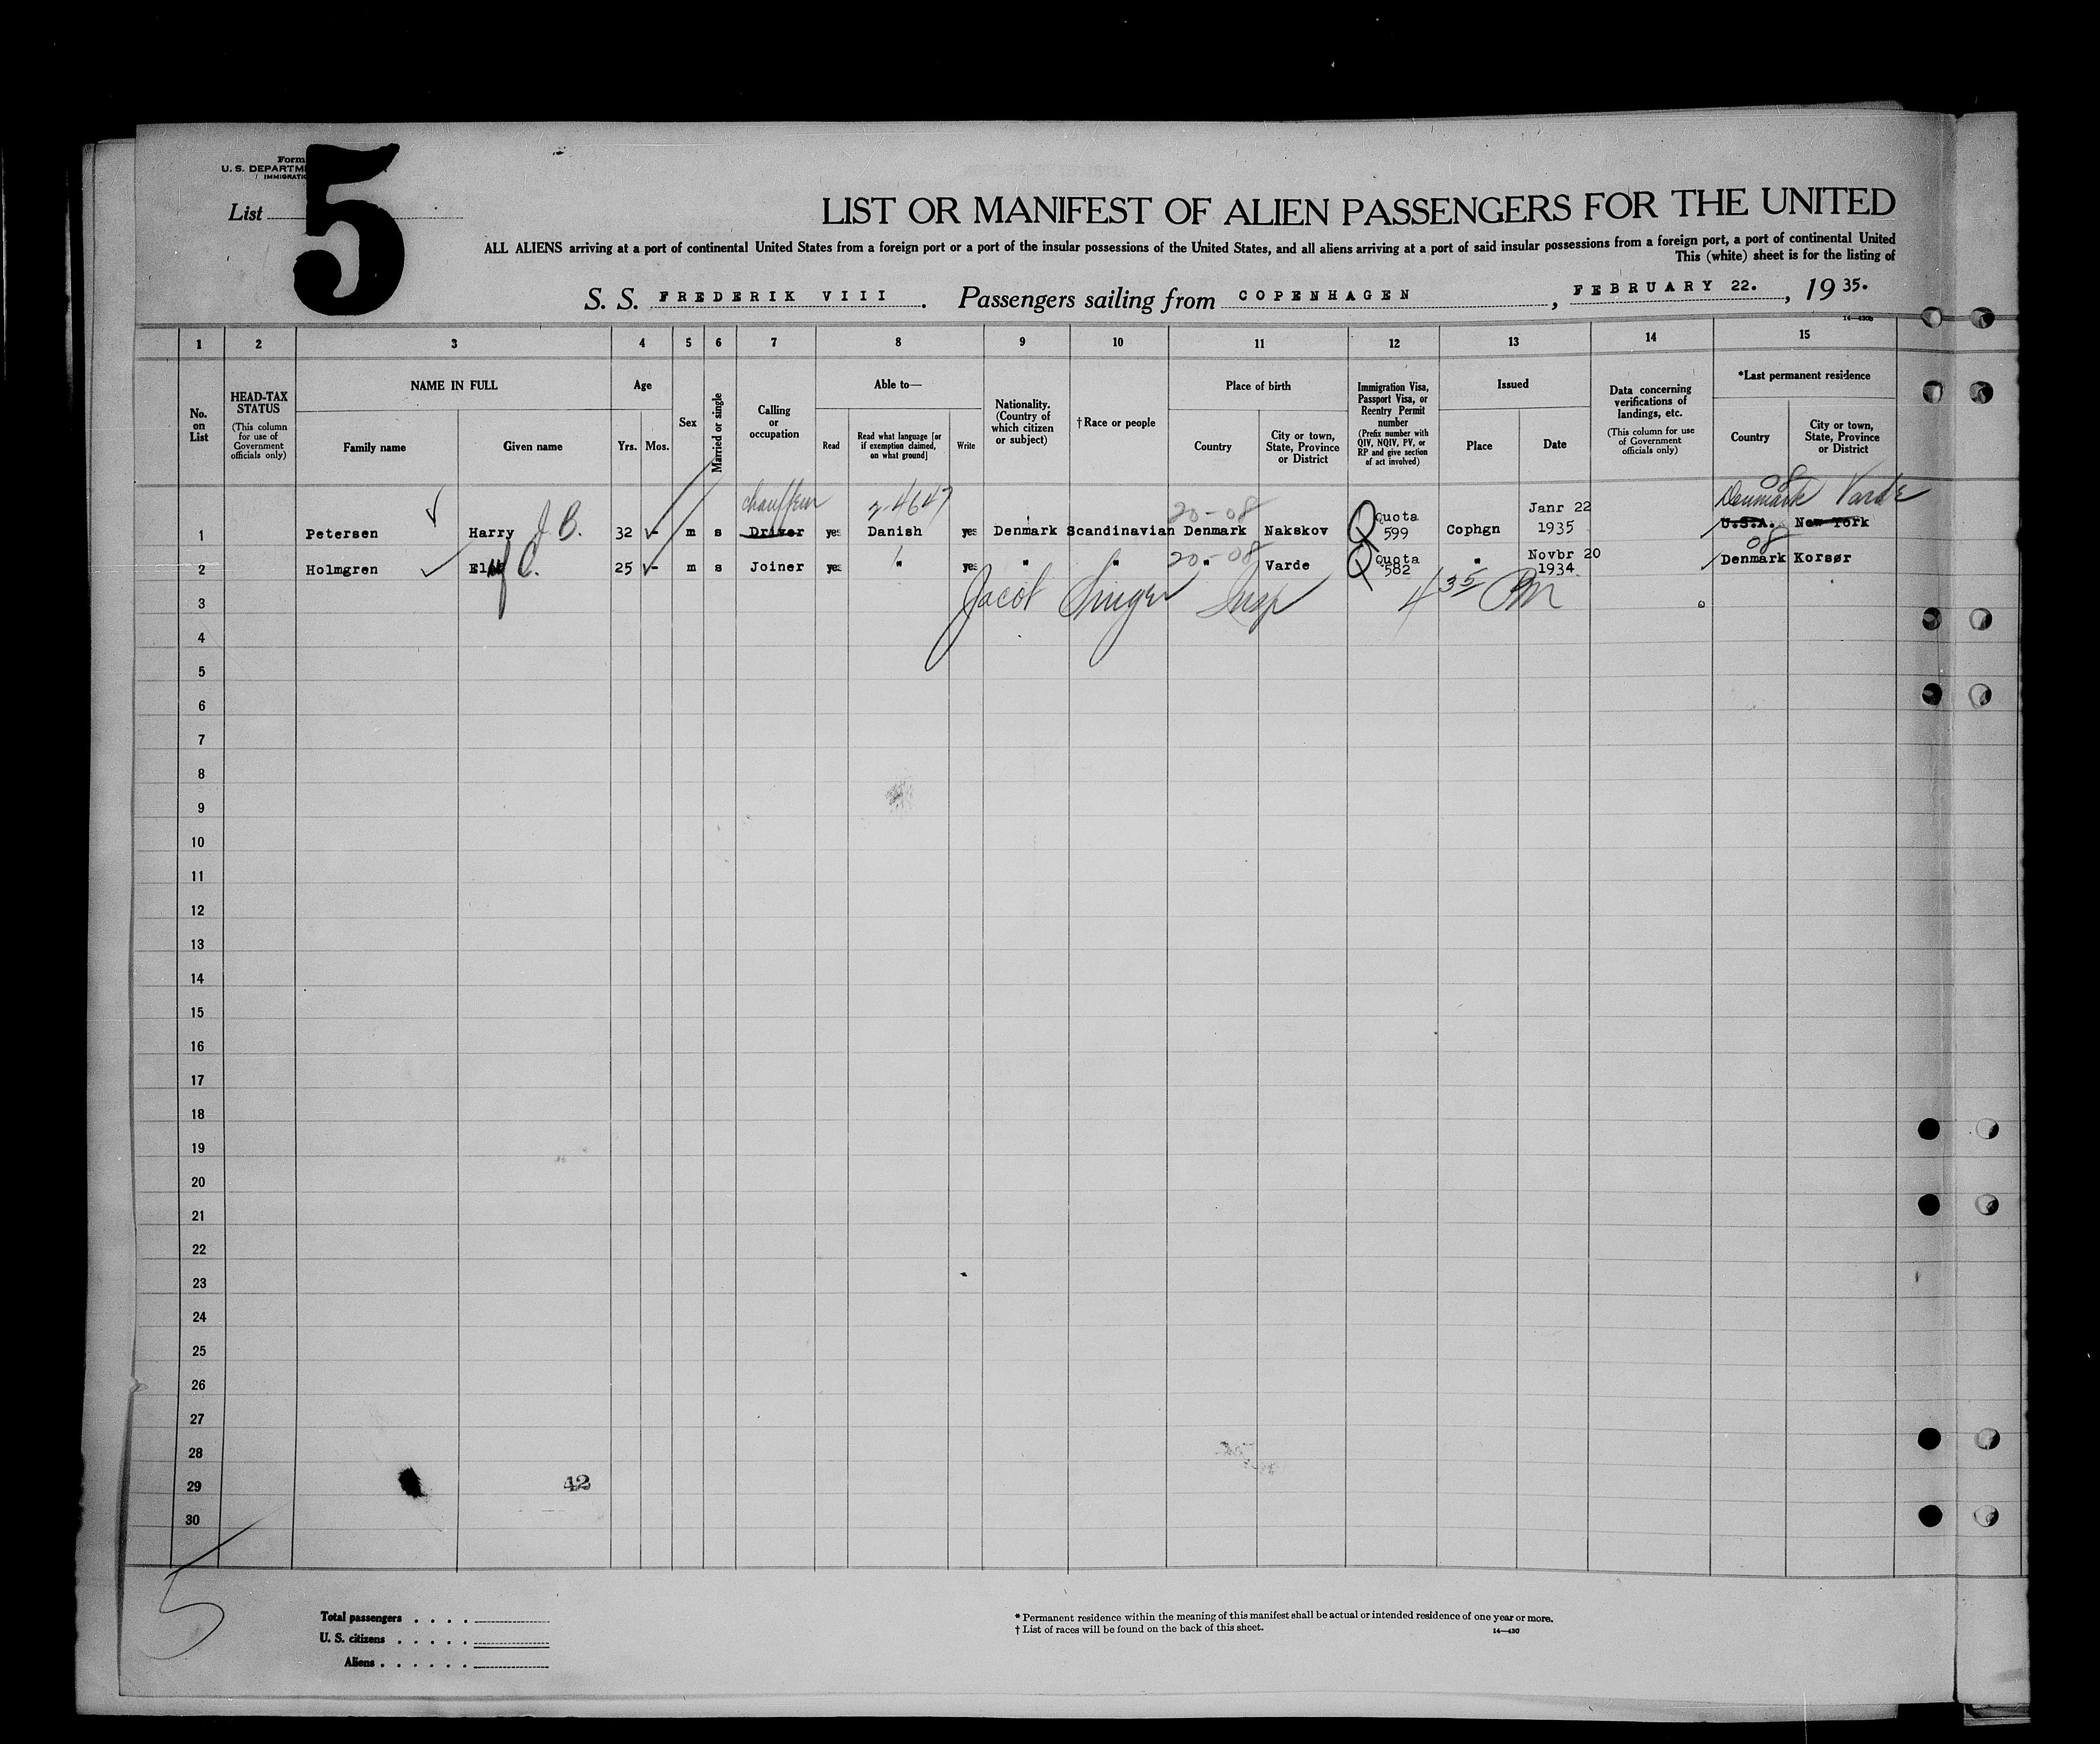 Form
U. S. DEPARTM
IMMIGRATIO
List
5
LIST OR MANIFEST OF ALIEN PASSENGERS FOR THE UNITED
ALL ALIENS arriving at a port of continental United States from a foreign port or a port of the insular possessions of the United States, and all aliens arriving at a port of said insular possessions from a foreign port, a port of continental United
This (white) sheet is for the listing of
S. S. FREDERIK VIII. Passengers sailing from COPENHAGEN, FEBRUARY 22., 1935.
14—430b
1 2 3 4 5 6 7 8 9 10 11 12 13 14 15
No. on List
HEAD-TAX STATUS
(This column for use of Government officials only)
NAME IN FULL
Family name Given name
Age
Yrs. Mos.
Sex
Married or single
Calling or occupation
Able to—
Read
Read what language [or if exemption claimed, on what ground]
Write
Nationality. (Country of which citizen or subject)
†Race or people
Place of birth
Country
City or town, State, Province or District
Immigration Visa, Passport Visa, or Reentry Permit number
(Prefix number with QIV, NQIV, PV, or RP and give section of act involved)
Issued
Place Date
Data concerning verifications of landings, etc.
(This column for use of Government officials only)
*Last permanent residence
Country
City or town, State, Province or District
chauffeur 2-4647 20-08 08 Denmark Varde
1 Petersen Harry J. B. 32 - m s Driver yes Danish yes Denmark Scandinavian Denmark Nakskov Q Quota 599 Cophgn Janr 22 1935 U.S.A. New York
20-08 08
2 Holmgren C. 25 - m s Joiner yes " yes " " " Varde Q Quota 582 " Novbr 20 1934 Denmark Korsør
Jacob Singer Insp 4 35 PM
3
4
5
6
7
8
9
10
11
12
13
14
15
16
17
18
19
20
21
22
23
24
25
26
27
28
29 42
30
5
Total passengers . . . .
U. S. citizens . . . . .
Aliens . . . . . .
* Permanent residence within the meaning of this manifest shall be actual or intended residence of one year or more.
† List of races will be found on the back of this sheet.
14—430